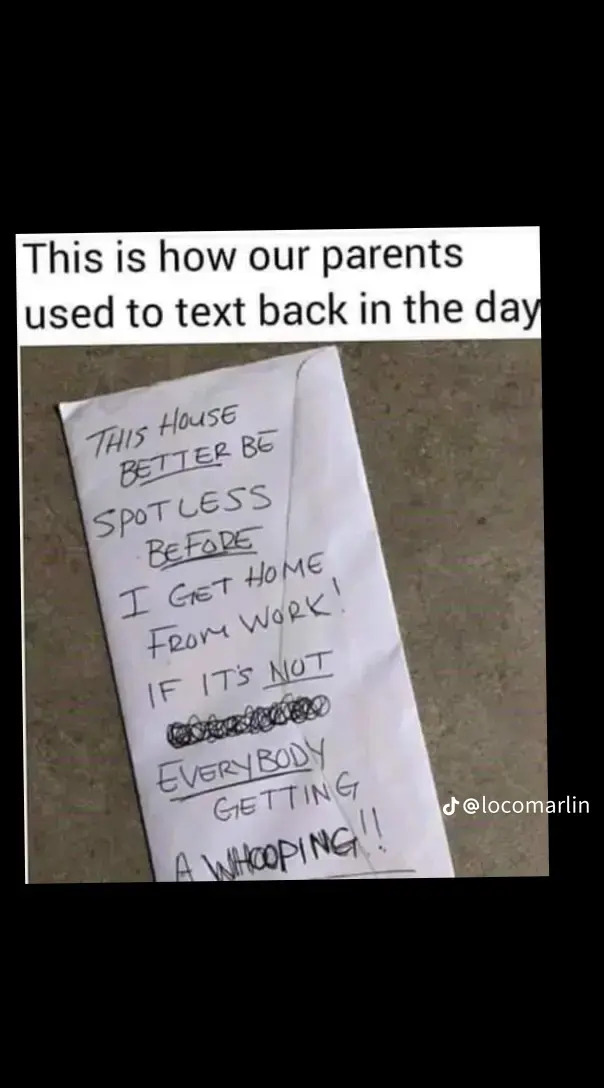 This is how our parents
used to text back in the day
THIS HOUSE
BETTER BE
SPOTLESS
BEFORE
I GET HOME
FROM WORK!
IF IT'S NOT
EVERYBODY
GETTING
A WHOOPING!!
@locomarlin